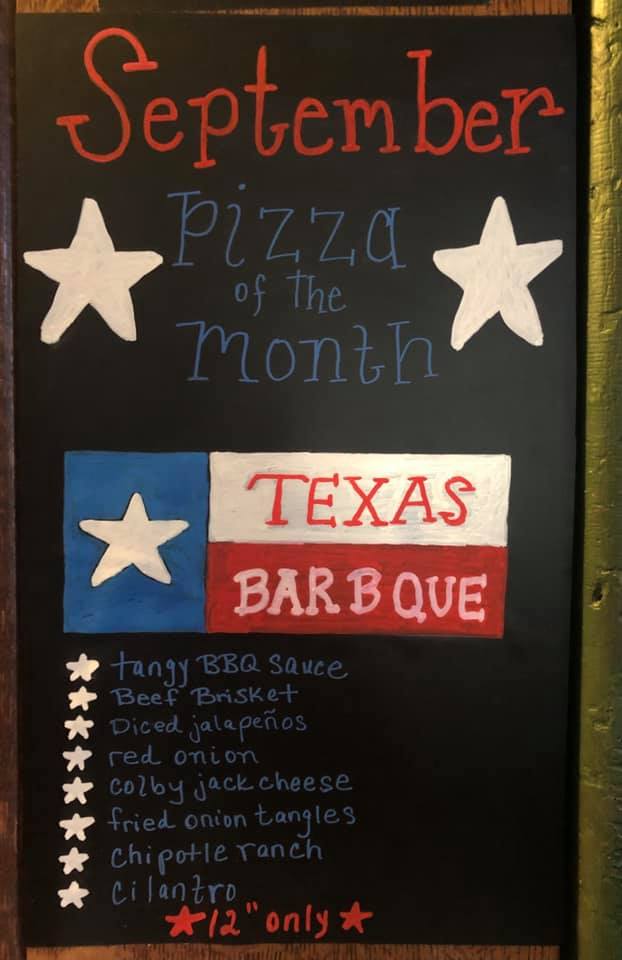 September
Pizza
of the
Month
TEXAS
BARBQUE
tangy BBQ sauce
Beef Brisket
Diced jalapeños
red onion
colby jack cheese
fried onion tangles
chipotle ranch
cilantro
12" only